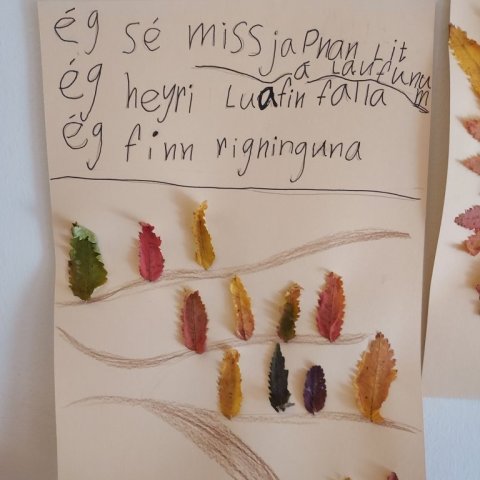 ég sé missjaPnan Lit
á Laufunum
ég heyri Luafin falla
ég finn rigninguna